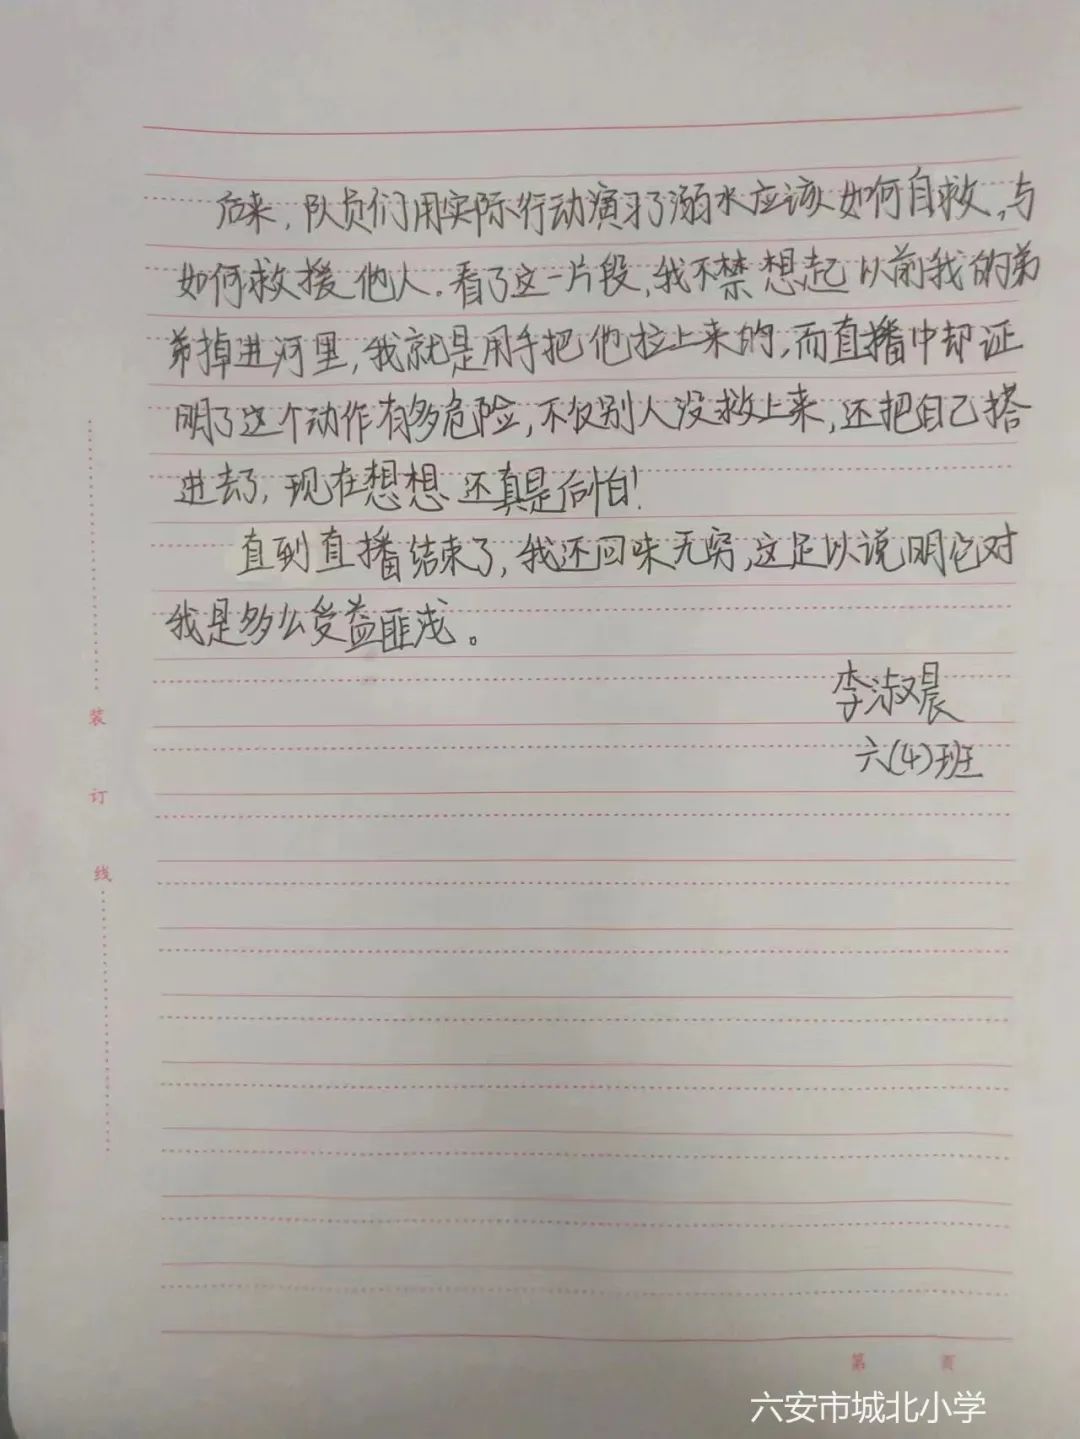 后来，队员们用实际行动演习了溺水应该如何自救，与
如何救援他人。看了这一片段，我不禁想起以前我的弟
弟掉进河里，我就是用手把他拉上来的，而直播中却证
明了这个动作有多危险，不仅别人没救上来，还把自己搭
进去了，现在想想还真是后怕！
直到直播结束了，我还回味无穷，这足以说明它对
我是多么受益匪浅。
李淑晨
六(4)班
装
订
线
第 页
六安市城北小学